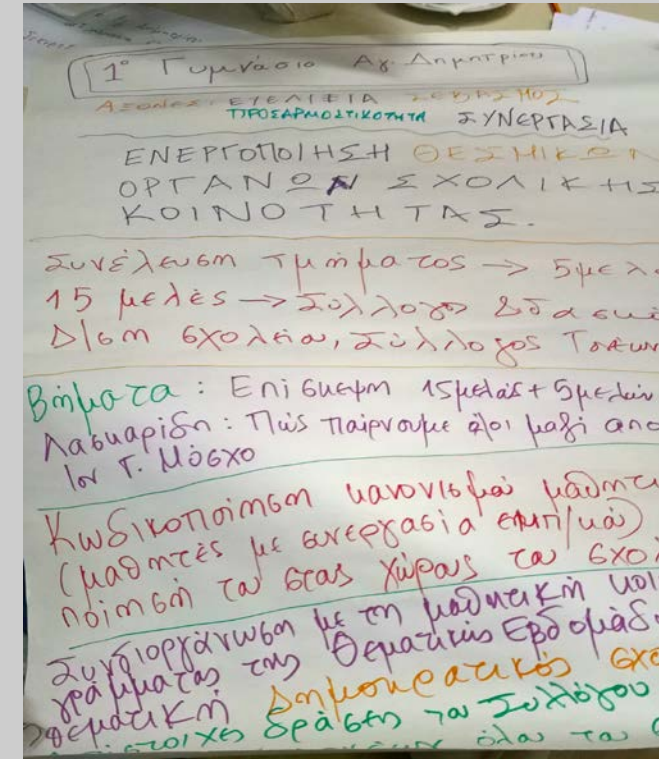 1° Γυμνάσιο Αγ. Δημητρίου
ΑΞΟΝΕΣ: ΕΥΕΛΙΞΙΑ ΣΕΒΑΣΜΟΣ
ΠΡΟΣΑΡΜΟΣΤΙΚΟΤΗΤΑ ΣΥΝΕΡΓΑΣΙΑ
ΕΝΕΡΓΟΠΟΙΗΣΗ ΘΕΣΜΙΚΩΝ
ΟΡΓΑΝΩΝ ΣΧΟΛΙΚΗΣ
ΚΟΙΝΟΤΗΤΑΣ.
Συνέλευση τμήματος → 5μελ
15 μελές → Σύλλογο
Δ/ση σχολείου, Σύλλογος
Βήματα: Επίσκεψη 15μελούς + 5μελών
Λασκαρίδη: Πώς παίρνουμε όλοι μαζί απο
Τ. Μόσχο
Κωδικοποίηση κανονισμού μαθητ
(μαθητές με συνεργασία εκπ/κού)
ποίησή του στους χώρους του σχολ
Συνδιοργάνωση με τη μαθητική κοι
γράμματος της Θεματικής Εβδομάδ
θεματική Δημοκρατικός σχο
δράσεις του Συλλόγου
όλου του